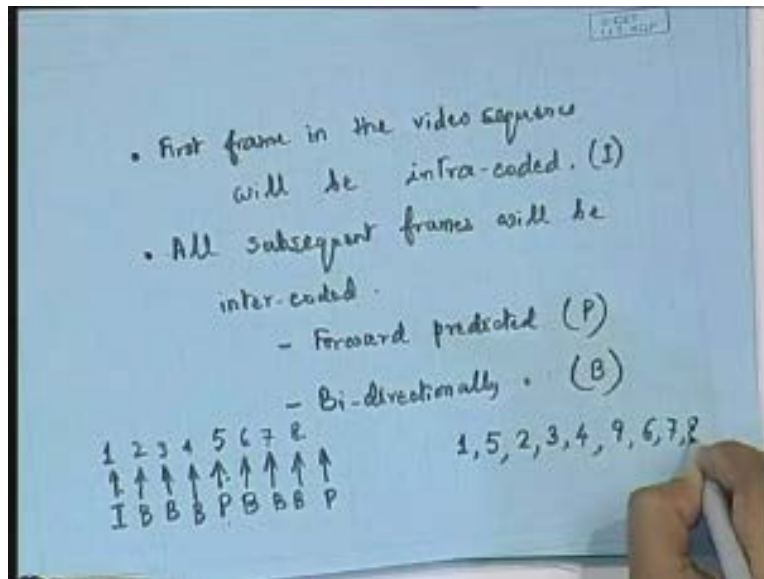 • First frame in the video sequence
will be intra-coded. (I)
• All subsequent frames will be
inter-coded.
- Forward predicted (P)
- Bi-directionally " (B)
1 2 3 4 5 6 7 8
I B B B P B B B P
1, 5, 2, 3, 4, 9, 6, 7, 8